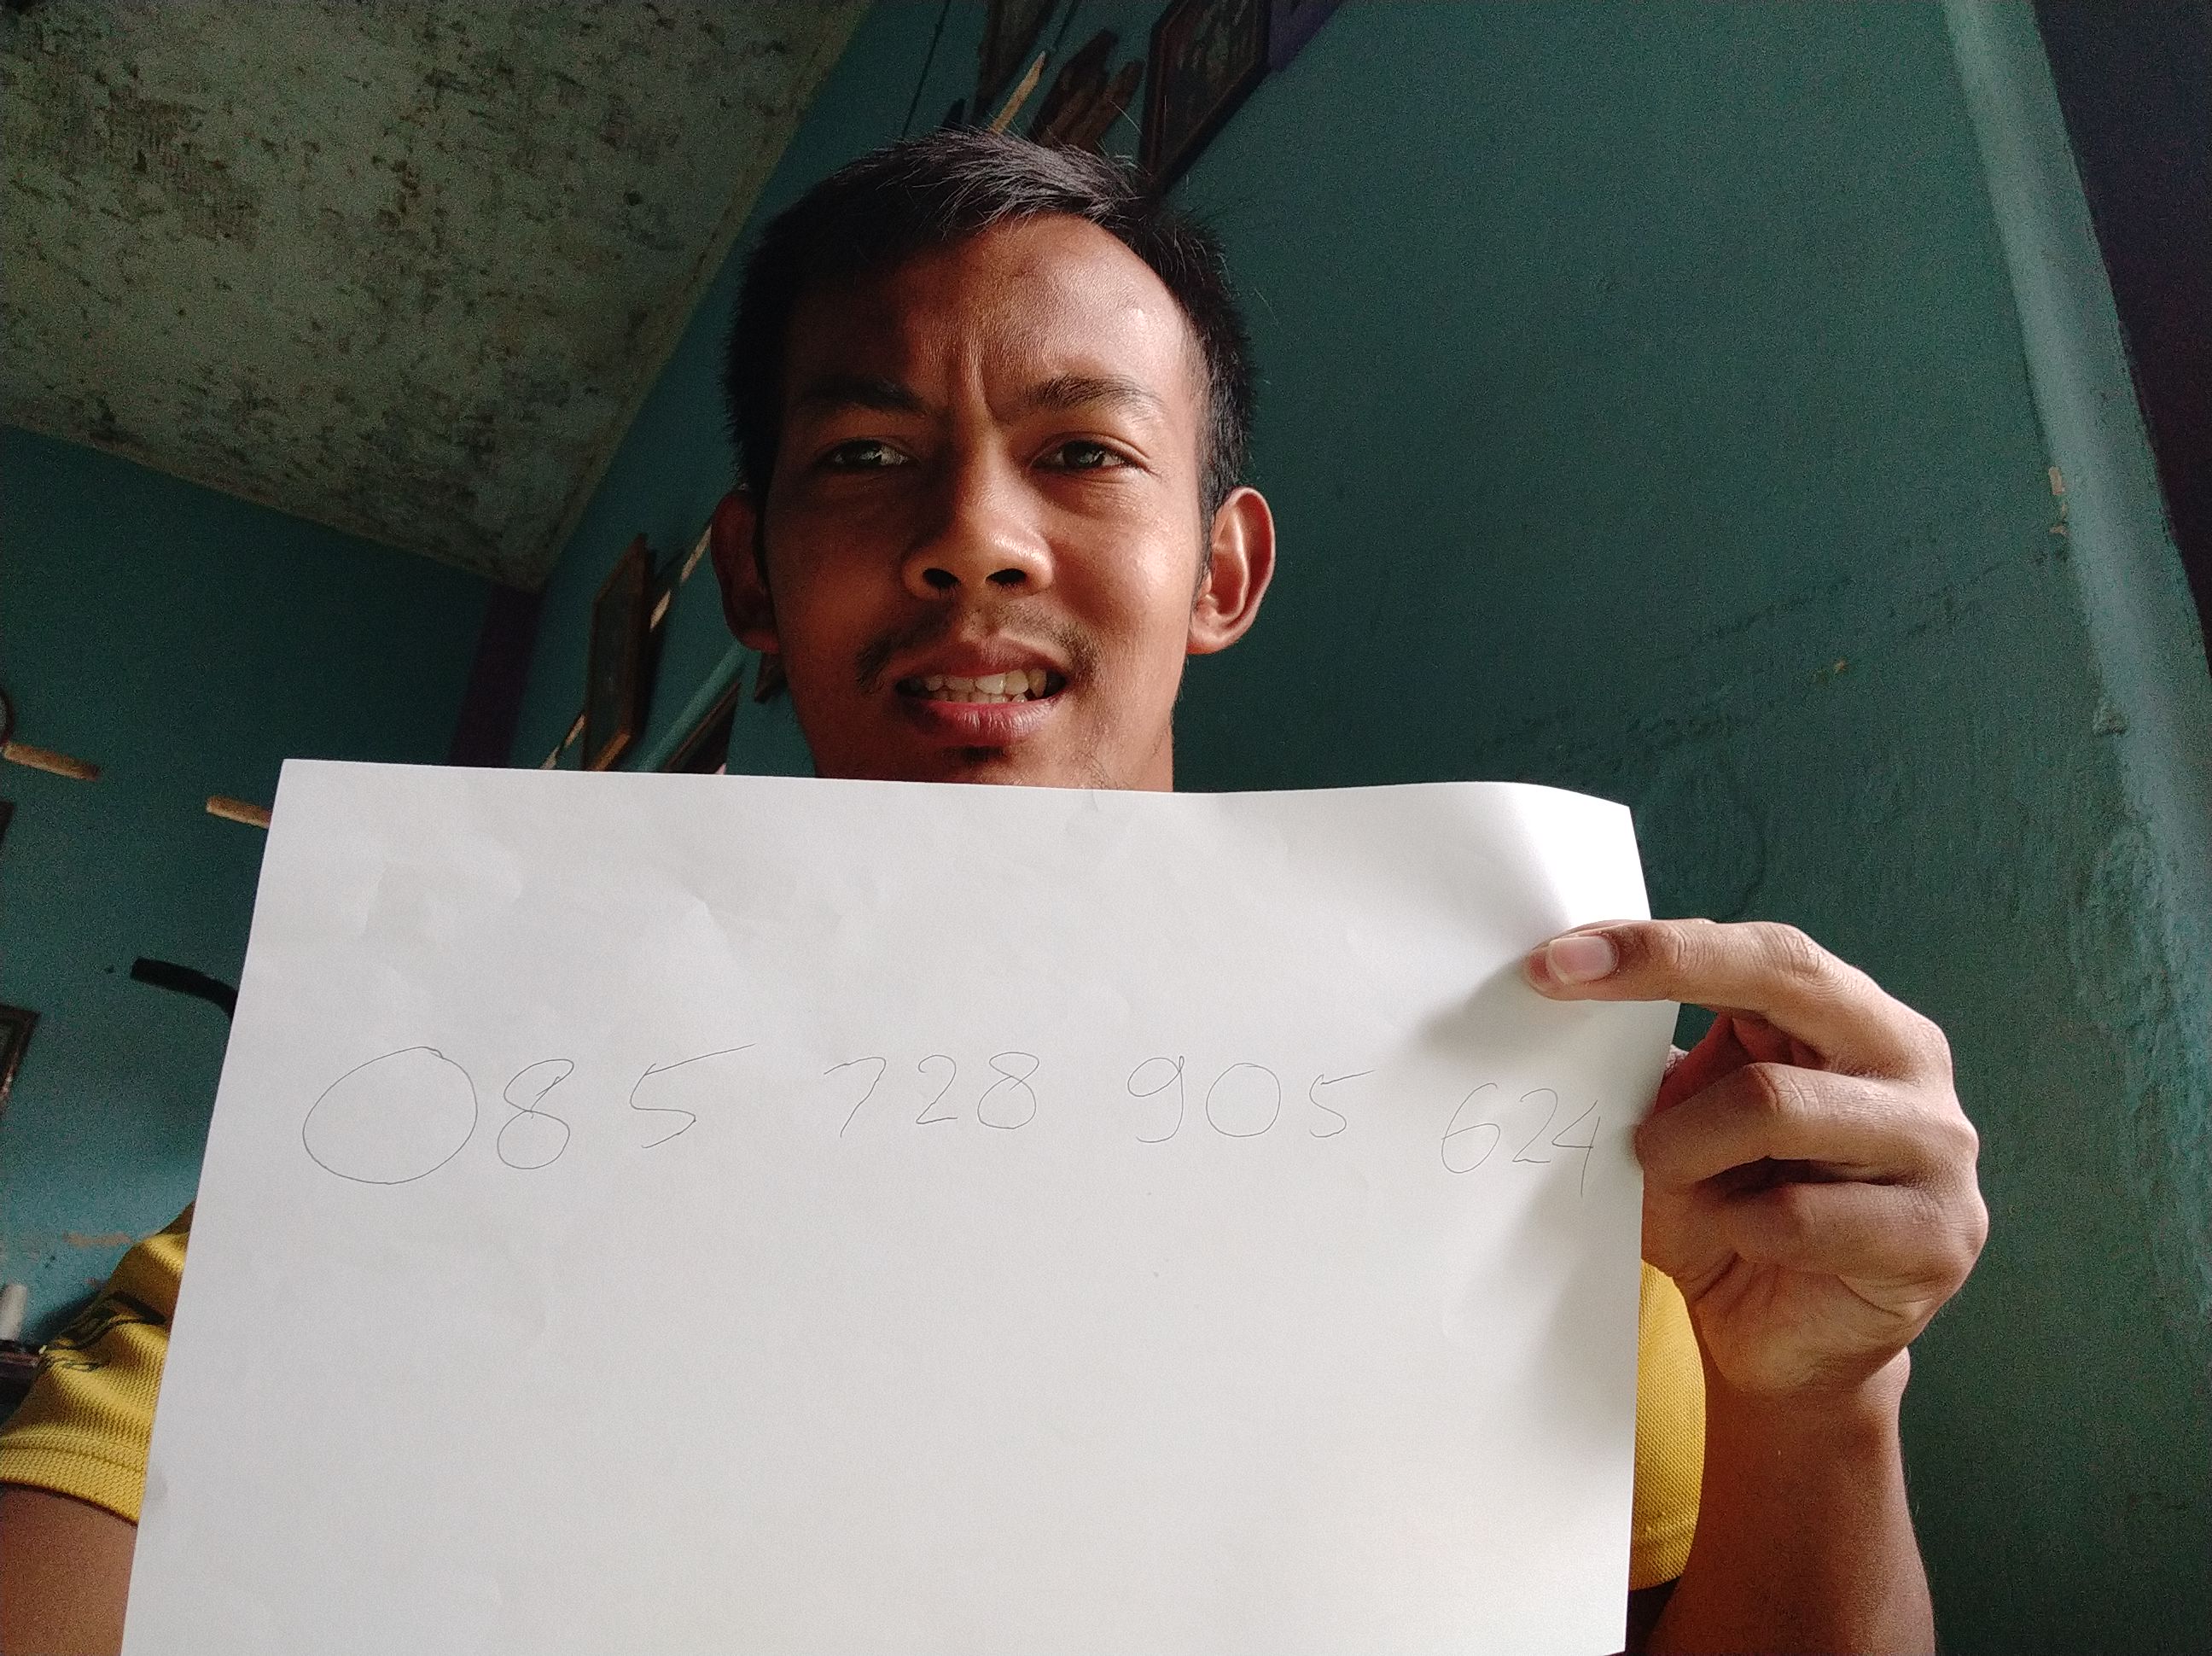 085 728 905 624